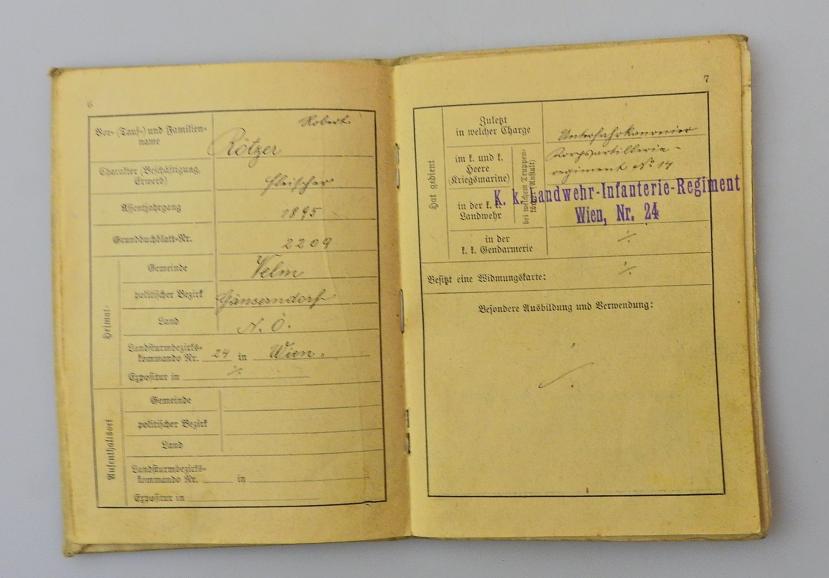 6
Vor- (Tauf-) und Familien-
name
Robert
Rötzer
Charakter (Beschäftigung,
Erwerb)
Fleischer
Assentjahrgang
1895
Grundbuchblatt-Nr.
2209
Heimat-
Gemeinde
Velm
politischer Bezirk
Gänserndorf
Land
N. Ö.
Landsturmbezirks-
kommando Nr. 24 in Wien.
Expositur in ./.
Aufenthaltsort
Gemeinde
politischer Bezirk
Land
Landsturmbezirks-
kommando Nr. in
Expositur in
7
Hat gedient
Zuletzt
in welcher Charge
Unterfahrkanonier
im k. und k.
Heere
(Kriegsmarine)
bei welchem Truppen-
Korpsartillerie-
regiment No 14
in der k. k.
Landwehr
K. k. Landwehr-Infanterie-Regiment
Wien, Nr. 24
in der
k. k. Gendarmerie
./.
Besitzt eine Widmungskarte:
./.
Besondere Ausbildung und Verwendung:
./.